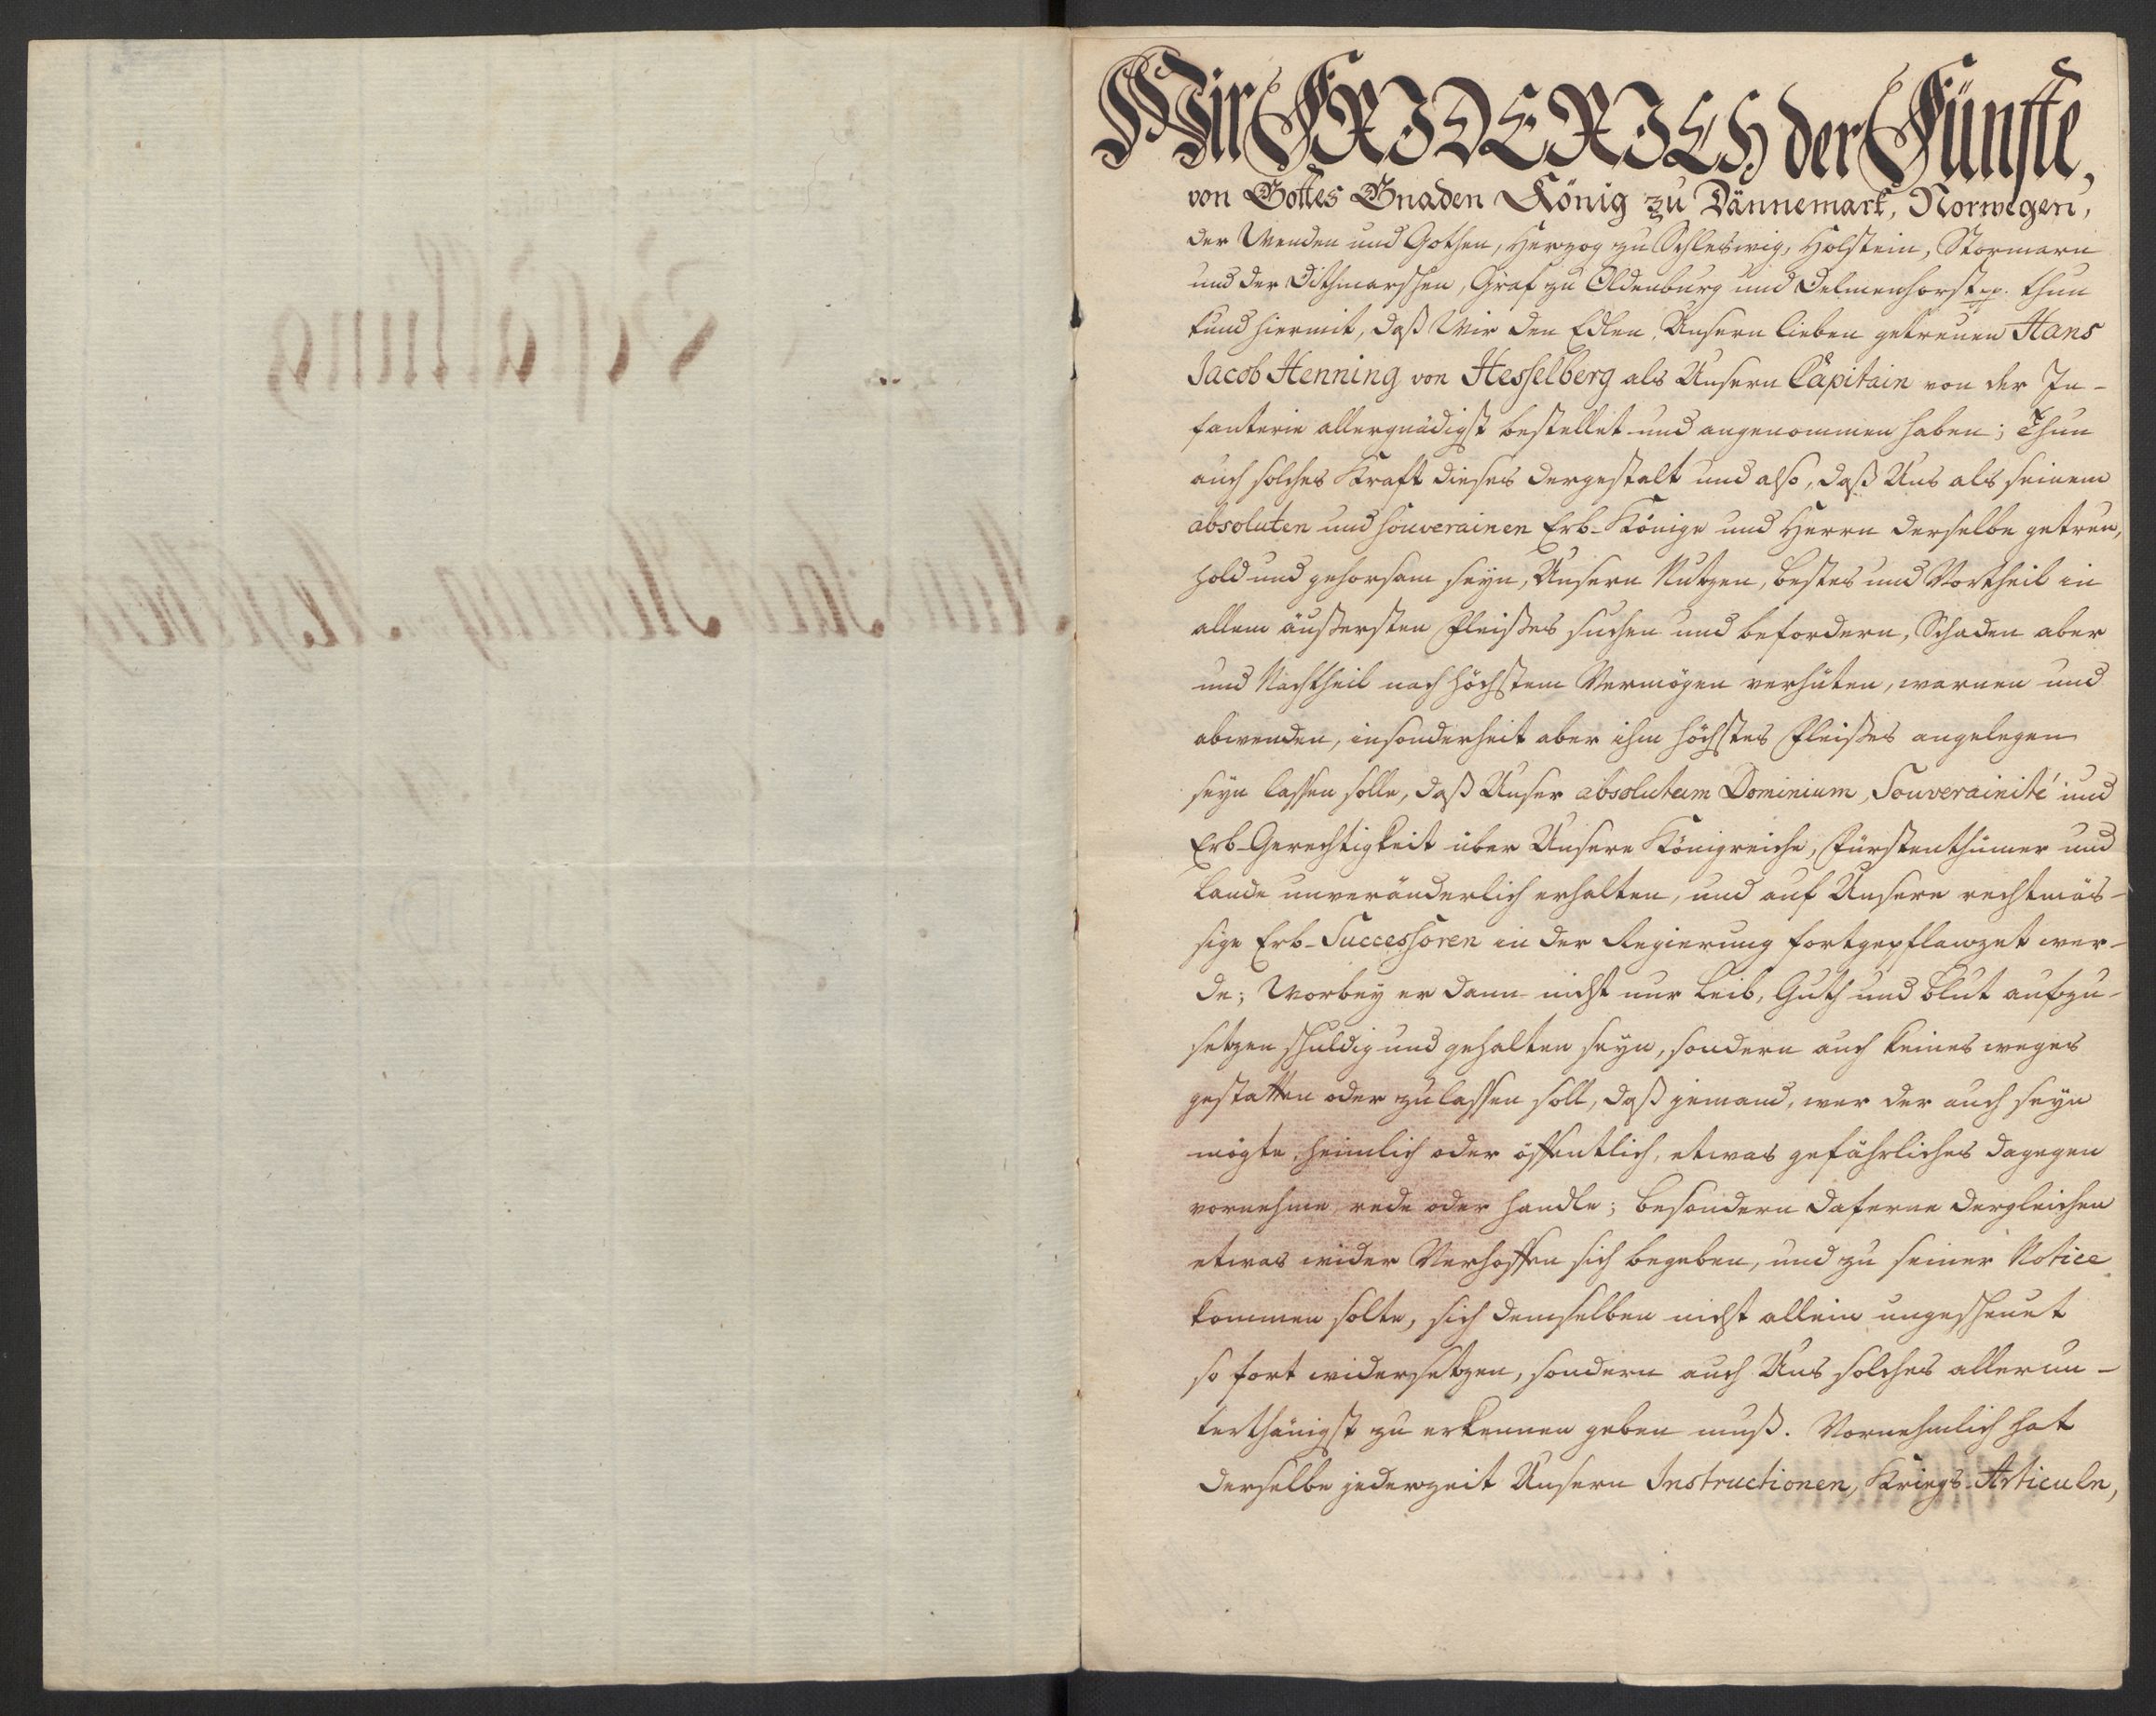 Wir FRIDERICH der Fünfte,
von Gottes Gnaden König zu Dännemark, Norwegen,
der Wenden und Gothen, Herzog zu Schleswig, Holstein, Stormarn
und der Dithmarschen, Graf zu Oldenburg und Delmenhorst p. thun
kund hiermit, daß Wir den Edlen, Unsern lieben getreuen Hans
Jacob Henning von Hesselberg als Unsern Capitain von der In-
fanterie allergnädigst bestellet und angenommen haben; Thun
auch solches Kraft dieses dergestalt und also, daß Uns als seinem
absoluten und souverainen Erb-Könige und Herrn derselbe getreu,
hold und gehorsam seyn, Unsern Nutzen, bestes und Vortheil in
allem äußersten Fleißes suchen und befordern, Schaden aber
und Nachtheil nach höchstem Vermögen verhüten, warnen und
abwenden, insonderheit aber ihm höchstes Fleißes angelegen
seyn lassen solle, daß Unser absolutum Dominium, Souverainité und
Erb-Gerechtigkeit über Unsere Königreiche, Fürstenthümer und
Lande unveränderlich erhalten, und auf Unsere rechtmäs-
sige Erb-Successoren in der Regierung fortgepflanzet wer-
de; Worbey er dann nicht nur Leib, Guth und Blut aufzu-
setzen schuldig und gehalten seyn, sondern auch keines weges
gestatten oder zulassen soll, daß jemand, wer der auch seyn
mögte, heimlich oder öffentlich, etwas gefährliches dagegen
vornehme, rede oder handle; besondern daferne dergleichen
etwas wider Verhoffen sich begeben, und zu seiner Notice
kommen solte, sich demselben nicht allein ungescheuet
so fort widersetzen, sondern auch Uns solches allerun-
terthänigst zu erkennen geben muß. Vornehmlich hat
derselbe jederzeit Unsern Instructionen, Kriegs-Articuln,